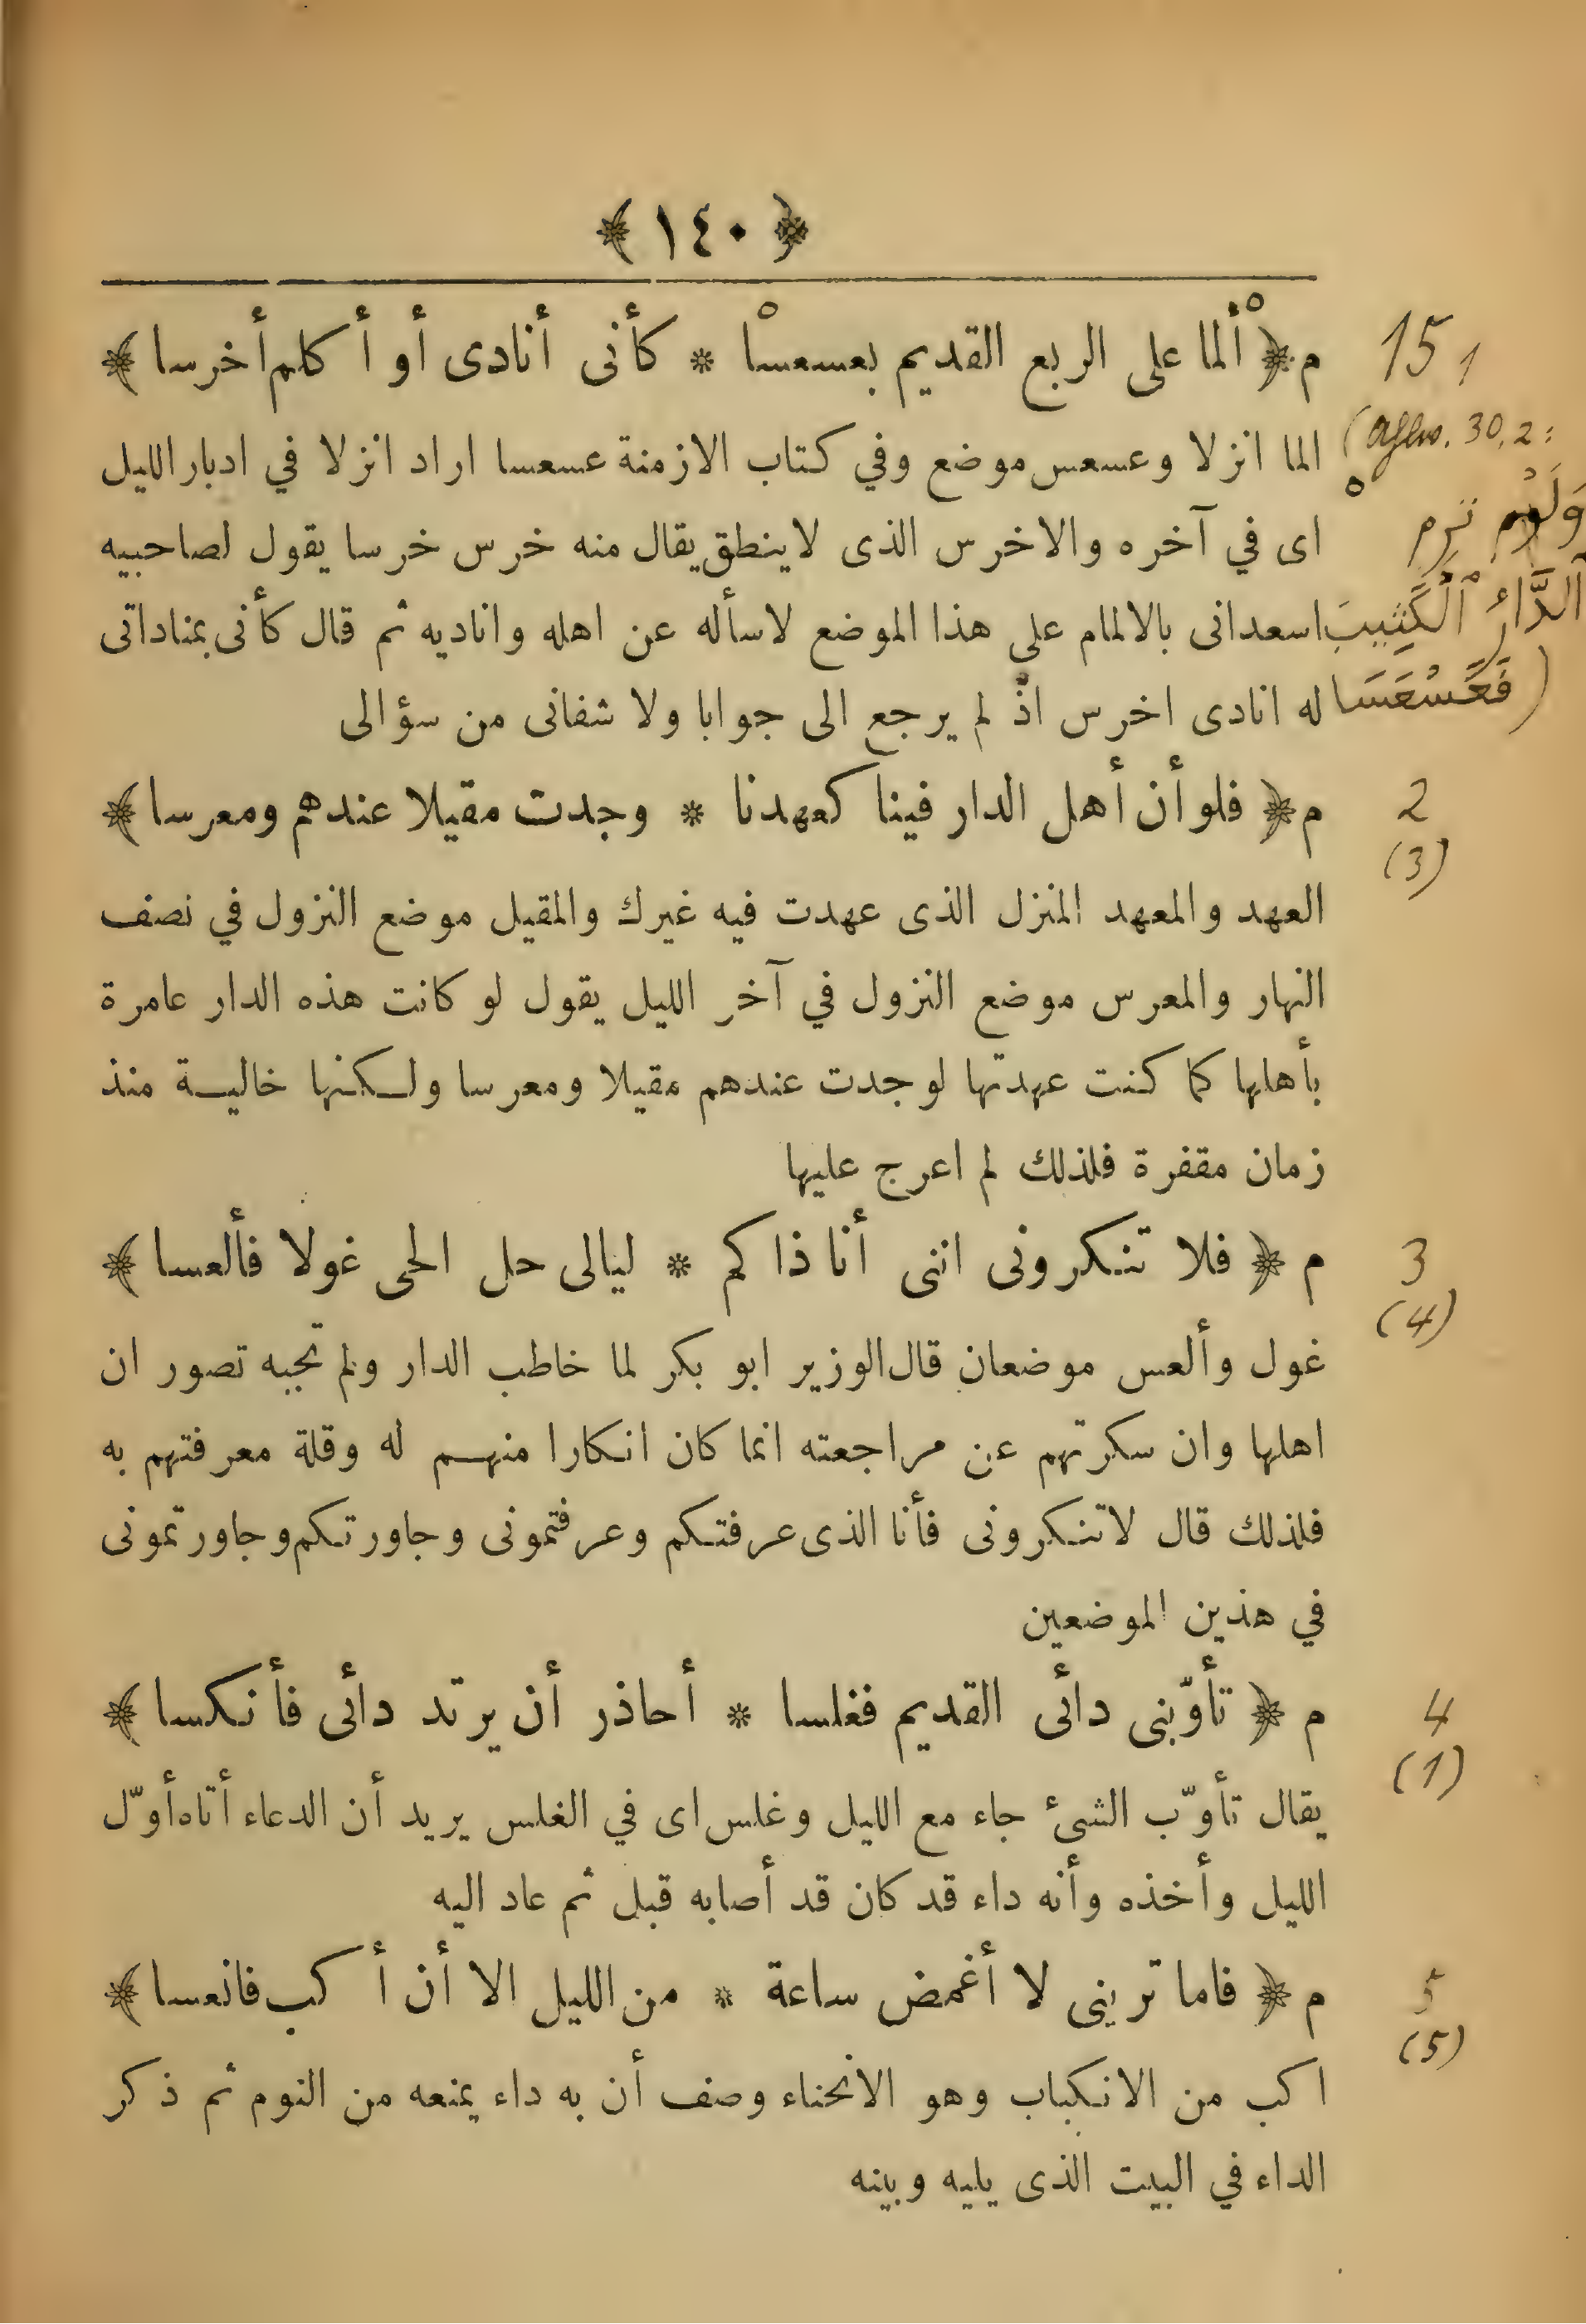 ﴿ ١٤٠ ﴾
م ﴿ ألما على الربع القديم بعسعسا * كأنى أنادى أو أكلم أخرسا ﴾
15 1
الما انزلا وعسعس موضع وفي كتاب الازمنة عسعسا اراد انزلا في ادبار الليل
(Ahlw. 30,2:
اى في آخره والاخرس الذى لا ينطق يقال منه خرس خرسا يقول لصاحبيه
ترم
اسعدانى بالالمام على هذا الموضع لاسأله عن اهله واناديه ثم قال كأنى بمناداتى
ٱلدَّارَ ٱلْكَثِيبَ
له انادى اخرس اذ لم يرجع الى جوابا ولا شفانى من سؤالى
فَعَسْعَسَا)
م ﴿ فلو أن أهل الدار فينا كعهدنا * وجدت مقيلا عندهم ومعرسا ﴾
2
(3)
العهد والمعهد المنزل الذى عهدت فيه غيرك والمقيل موضع النزول في نصف
النهار والمعرس موضع النزول في آخر الليل يقول لو كانت هذه الدار عامرة
بأهلها كما كنت عهدتها لوجدت عندهم مقيلا ومعرسا ولكنها خالية منذ
زمان مقفرة فلذلك لم اعرج عليها
م ﴿ فلا تنكرونى اننى أنا ذاكم * ليالى حل الحى غولا فألعسا ﴾
3
(4)
غول وألعس موضعان قال الوزير ابو بكر لما خاطب الدار ولم تجبه تصور ان
اهلها وان سكرتهم عن مراجعته انما كان انكارا منهم له وقلة معرفتهم به
فلذلك قال لاتنكرونى فأنا الذى عرفتكم وعرفتمونى وجاورتكم وجاورتمونى
في هذين الموضعين
م ﴿ تأوّبنى دائى القديم فغلسا * أحاذر أن يرتد دائى فأنكسا ﴾
4
(1)
يقال تأوّب الشئ جاء مع الليل وغلس اى في الغلس يريد أن الدعاء أتاه أوّل
الليل وأخذه وأنه داء قد كان قد أصابه قبل ثم عاد اليه
م ﴿ فاما ترينى لا أغمض ساعة * من الليل الا أن أكب فانعسا ﴾
5
(5)
اكب من الانكباب وهو الانحناء وصف أن به داء يمنعه من النوم ثم ذكر
الداء في البيت الذى يليه وبينه